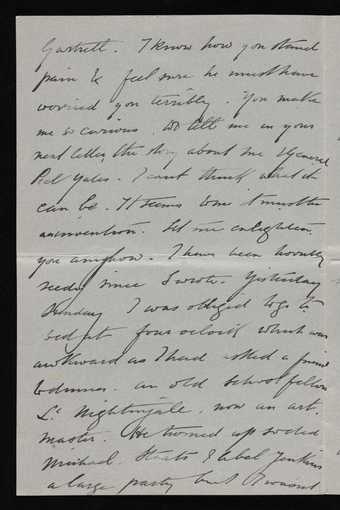 Gartrell. I know how you stand
pain & feel sure he must have
worried you terribly. You make
me so curious. Do tell me in your
next letter the story about me & General
Pol Yates. I can't think what it
can be. It seems to me it must be
an invention. Let me enlighten
you anyhow. I have been horribly
seedy since I wrote. Yesterday
Sunday I was obliged to go to
bed at four o'clock which was
awkward as I had asked a friend
to dinner. an old school fellow
L. Nightingale, now an art
master. He turned up so did
Michael. Staats & Abel Jenkins
a large party but I wasn't